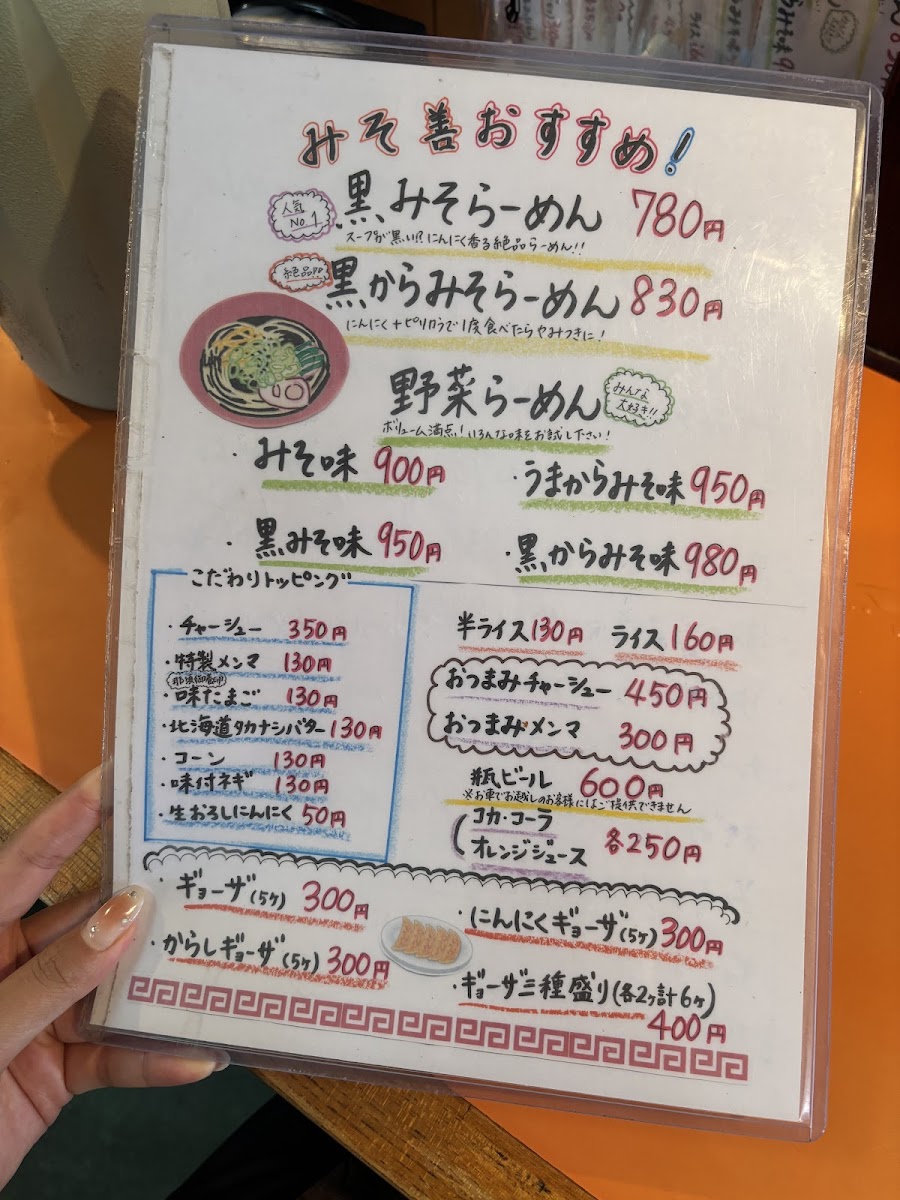 みそ善おすすめ!
人気No.1
黒みそらーめん 780円
スープが黒い!?にんにく香る絶品らーめん!!
絶品!!
黒からみそらーめん 830円
にんにく+ピリカラで1度食べたらやみつきに!
野菜らーめん
みんな大好き!!
ボリューム満点!いろんな味をお試し下さい!
・みそ味 900円
・うまからみそ味 950円
・黒みそ味 950円
・黒からみそ味 980円
こだわりトッピング
・チャーシュー 350円
・特製メンマ 130円
・味たまご 130円
・北海道タカナシバター 130円
・コーン 130円
・味付ネギ 130円
・生おろしにんにく 50円
半ライス 130円 ライス 160円
おつまみチャーシュー 450円
おつまみメンマ 300円
瓶ビール 600円
※お車でお越しのお客様にはご提供できません
コカ・コーラ
オレンジジュース
各250円
・ギョーザ(5ケ) 300円
・にんにくギョーザ(5ケ) 300円
・からしギョーザ(5ケ) 300円
・ギョーザ三種盛り(各2ケ計6ケ)
400円